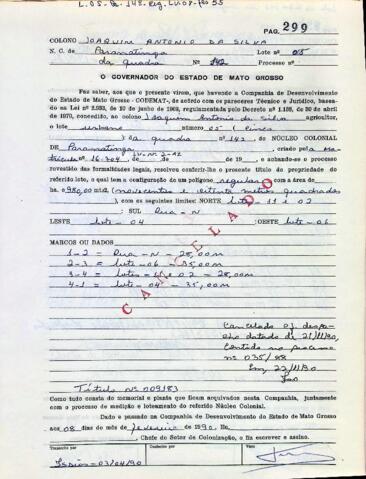 L.05-fs. 148. Reg. LV-08-fls 55
PAG. 299
COLONO JOAQUIM ANTONIO DA SILVA
N. C. de Paranatinga Lote nº 05
da quadra Nº 142 Processo nº
O GOVERNADOR DO ESTADO DE MATO GROSSO
Faz saber, aos que o presente virem, que havendo a Companhia de Desenvolvimento
do Estado de Mato Grosso - CODEMAT-, de acordo com os pareceres Técnico e Jurídico, basea-
do na Lei nº 2.933, de 10 de junho de 1969, regulamentada pelo Decreto nº 1.138, de 20 de abril
de 1970, concedido, ao colono Joaquim Antonio da Silva agricultor,
o lote urbano número 05 (cinco)
da quadra nº 142, do NÚCLEO COLONIAL
DE Paranatinga, criado pela Ma-
trícula nº 16.704 LV. Nº 2-A2 de de 19 , e achando-se o processo
revestido das formalidades legais, resolveu conferir-lhe o presente título de propriedade
do referido lote, o qual tem a configuração de um polígono regular com a área de
ha 980,00 mts2 (novecentos e oitenta metros quadrados
), com os seguintes limites: NORTE lote - 11 e 02
: SUL Rua - N
LESTE lote - 04 : OESTE lote - 06
MARCOS OU DADOS
1-2 = Rua - N - 28,00m
2-3 = lote - 06 - 35,00m
3-4 = lotes - 11 e 02 - 28,00m
4-1 = lote - 04 - 35,00m
CANCELADO
Cancelado cf. despa-
cho datado de 21/11/90,
contido no processo
nº 035/88
Em, 22/11/90
Título Nº 009183
Como tudo consta do memorial e planta que ficam arquivados nesta Companhia, juntamente
com o processo de medição e loteamento do referido Núcleo Colonial.
Dado e passado na Companhia de Desenvolvimento do Estado de Mato Grosso
aos 08 dias do mês de fevereiro de 1990. Eu,
, Chefe do Setor de Colonização, o fiz escrever e assino.
Transcrito por Conferido por Visto
03/04/90